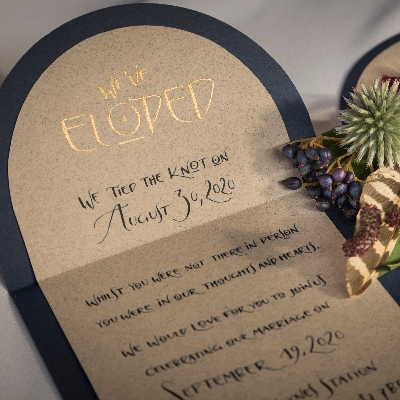 WE'VE
ELOPED
WE TIED THE KNOT ON
AUGUST 30, 2020
WHILST YOU WERE NOT THERE IN PERSON
YOU WERE IN OUR THOUGHTS AND HEARTS.
WE WOULD LOVE FOR YOU TO JOIN US
CELEBRATING OUR MARRIAGE ON
SEPTEMBER 19, 2020
STATION